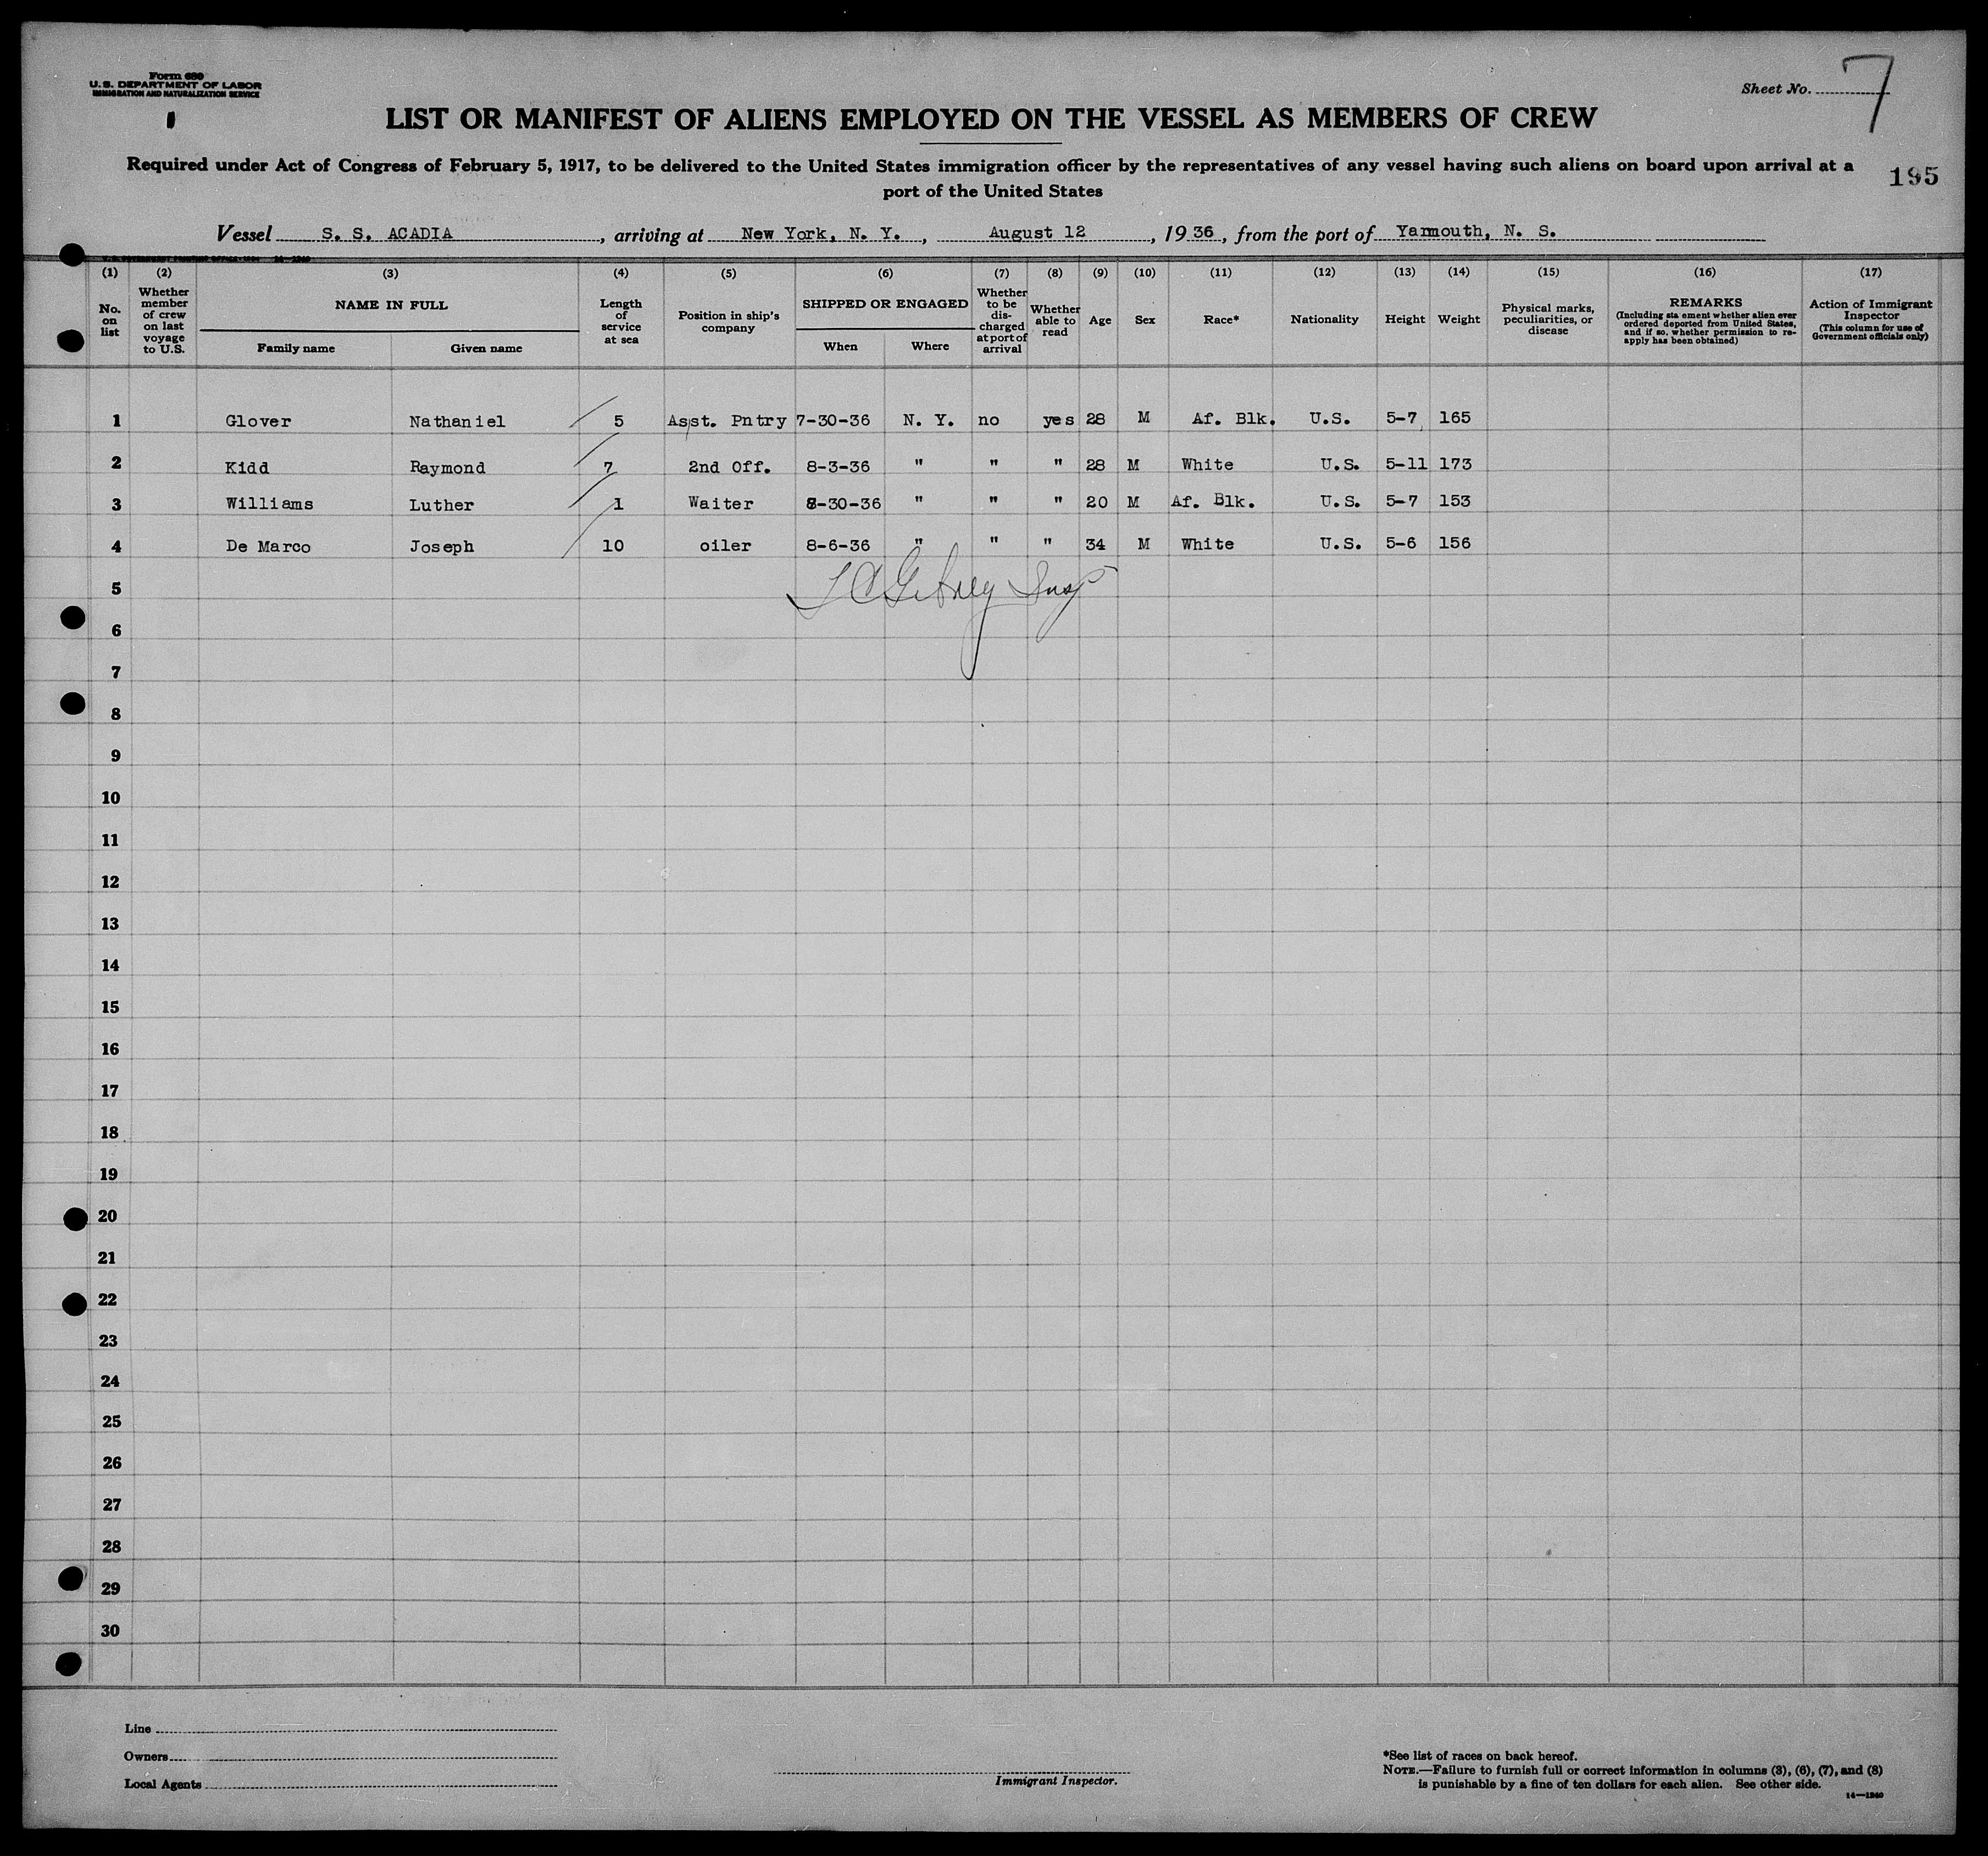 Form 680
U. S. DEPARTMENT OF LABOR
IMMIGRATION AND NATURALIZATION SERVICE
Sheet No. 7
LIST OR MANIFEST OF ALIENS EMPLOYED ON THE VESSEL AS MEMBERS OF CREW
Required under Act of Congress of February 5, 1917, to be delivered to the United States immigration officer by the representatives of any vessel having such aliens on board upon arrival at a
port of the United States
195
Vessel S. S. ACADIA, arriving at New York, N. Y., August 12, 1936, from the port of Yarmouth, N. S.
(1) (2) (3) (4) (5) (6) (7) (8) (9) (10) (11) (12) (13) (14) (15) (16) (17)
No. on list
Whether member of crew on last voyage to U.S.
NAME IN FULL
Family name Given name
Length of service at sea
Position in ship's company
SHIPPED OR ENGAGED
When Where
Whether to be discharged at port of arrival
Whether able to read
Age
Sex
Race*
Nationality
Height
Weight
Physical marks, peculiarities, or disease
REMARKS
(Including sta ement whether alien ever ordered deported from United States, and if so, whether permission to re-apply has been obtained)
Action of Immigrant Inspector
(This column for use of Government officials only)
1 Glover Nathaniel 5 Asst. Pntry 7-30-36 N. Y. no yes 28 M Af. Blk. U.S. 5-7 165
2 Kidd Raymond 7 2nd Off. 8-3-36 " " " 28 M White U.S. 5-11 173
3 Williams Luther 1 Waiter 8-30-36 " " " 20 M Af. Blk. U.S. 5-7 153
4 De Marco Joseph 10 oiler 8-6-36 " " " 34 M White U.S. 5-6 156
5
Insp
6
7
8
9
10
11
12
13
14
15
16
17
18
19
20
21
22
23
24
25
26
27
28
29
30
Line
Owners
Local Agents
Immigrant Inspector.
*See list of races on back hereof.
NOTE.—Failure to furnish full or correct information in columns (3), (6), (7), and (8)
is punishable by a fine of ten dollars for each alien. See other side.
14—1240